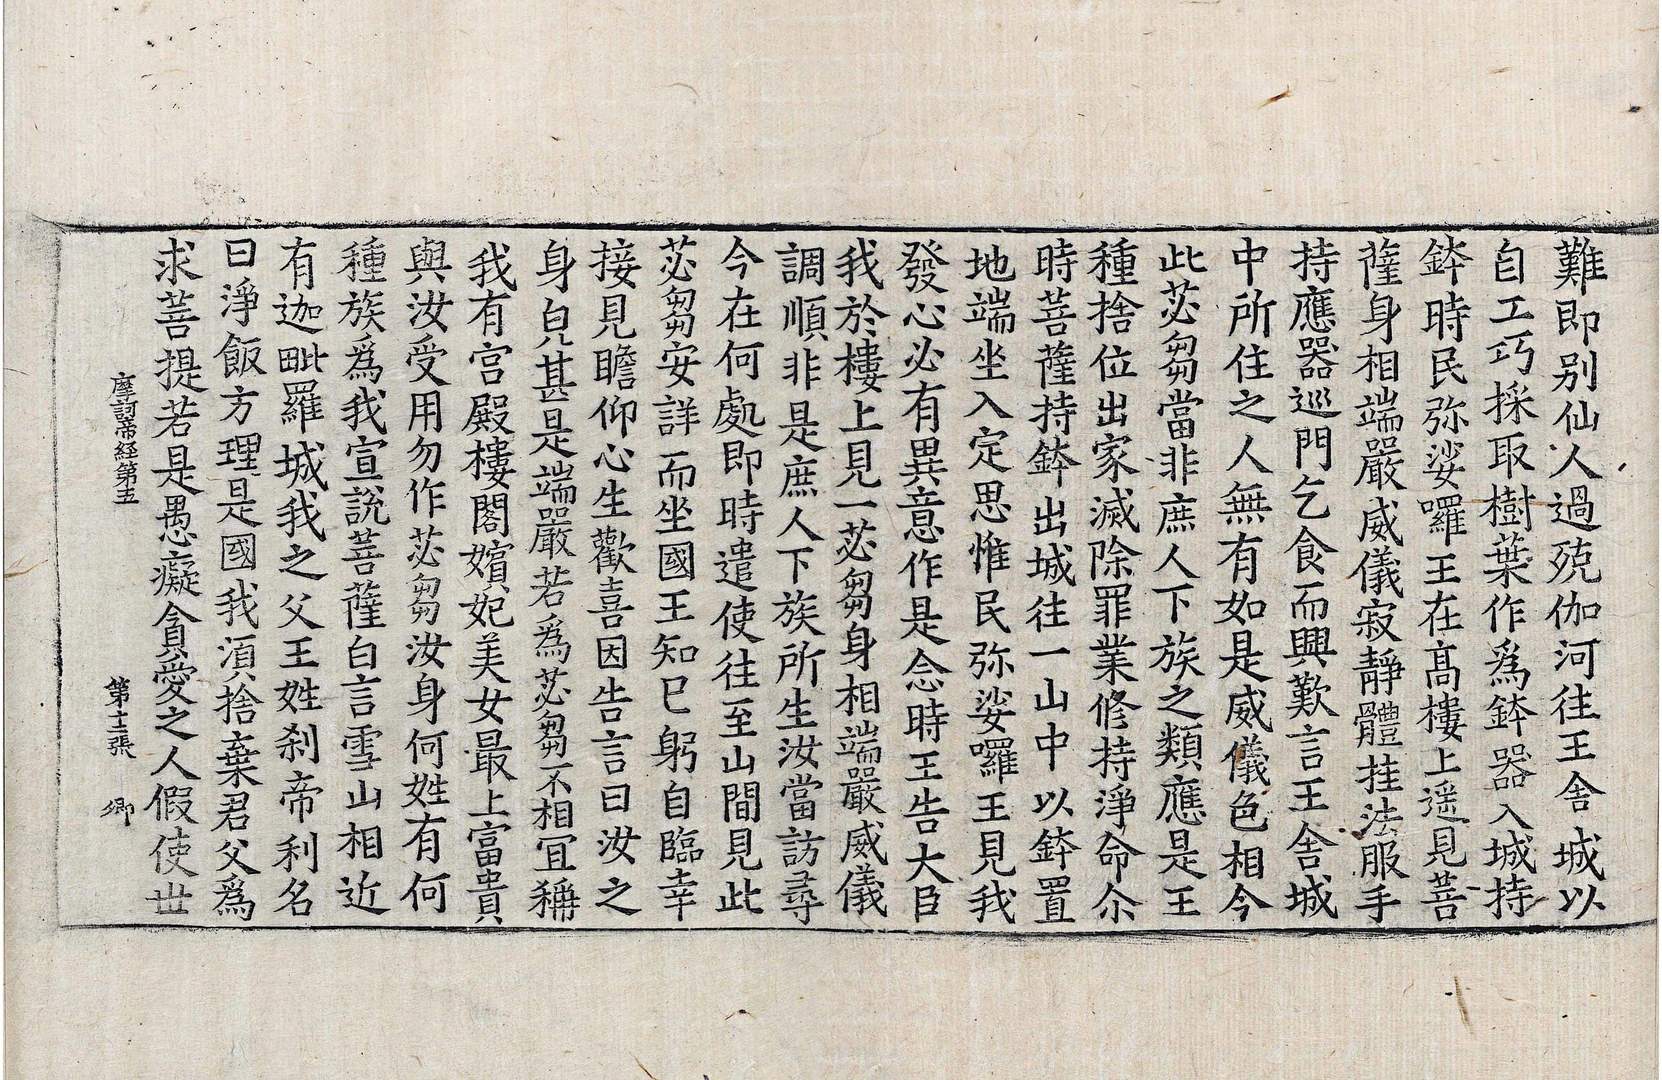 難即别仙人過殑伽河往王舍城以
自工巧採取樹葉作爲鉢器入城持
鉢時民弥娑囉王在髙樓上遥見菩
薩身相端嚴威儀寂靜體挂法服手
持應器巡門乞食而興歎言王舍城
中所住之人無有如是威儀色相今
此苾芻當非庶人下族之類應是王
種捨位出家滅除罪業修持淨命尒
時菩薩持鉢出城往一山中以鉢置
地端坐入定思惟民弥娑囉王見我
發心必有異意作是念時王告大臣
我於樓上見一苾芻身相端嚴威儀
調順非是庶人下族所生汝當訪尋
今在何處即時遣使往至山間見此
苾芻安詳而坐國王知已躬自臨幸
接見瞻仰心生歡喜因告言曰汝之
身皃甚是端嚴若爲苾芻不相冝稱
我有宫殿樓閣嬪妃美女最上富貴
與汝受用勿作苾芻汝身何姓有何
種族爲我宣説菩薩白言雪山相近
有迦毗羅城我之父王姓刹帝利名
曰淨飯方理是國我湏捨棄君父爲
求菩提若是愚癡貪愛之人假使世
摩訶帝經第五 第十二張 卿